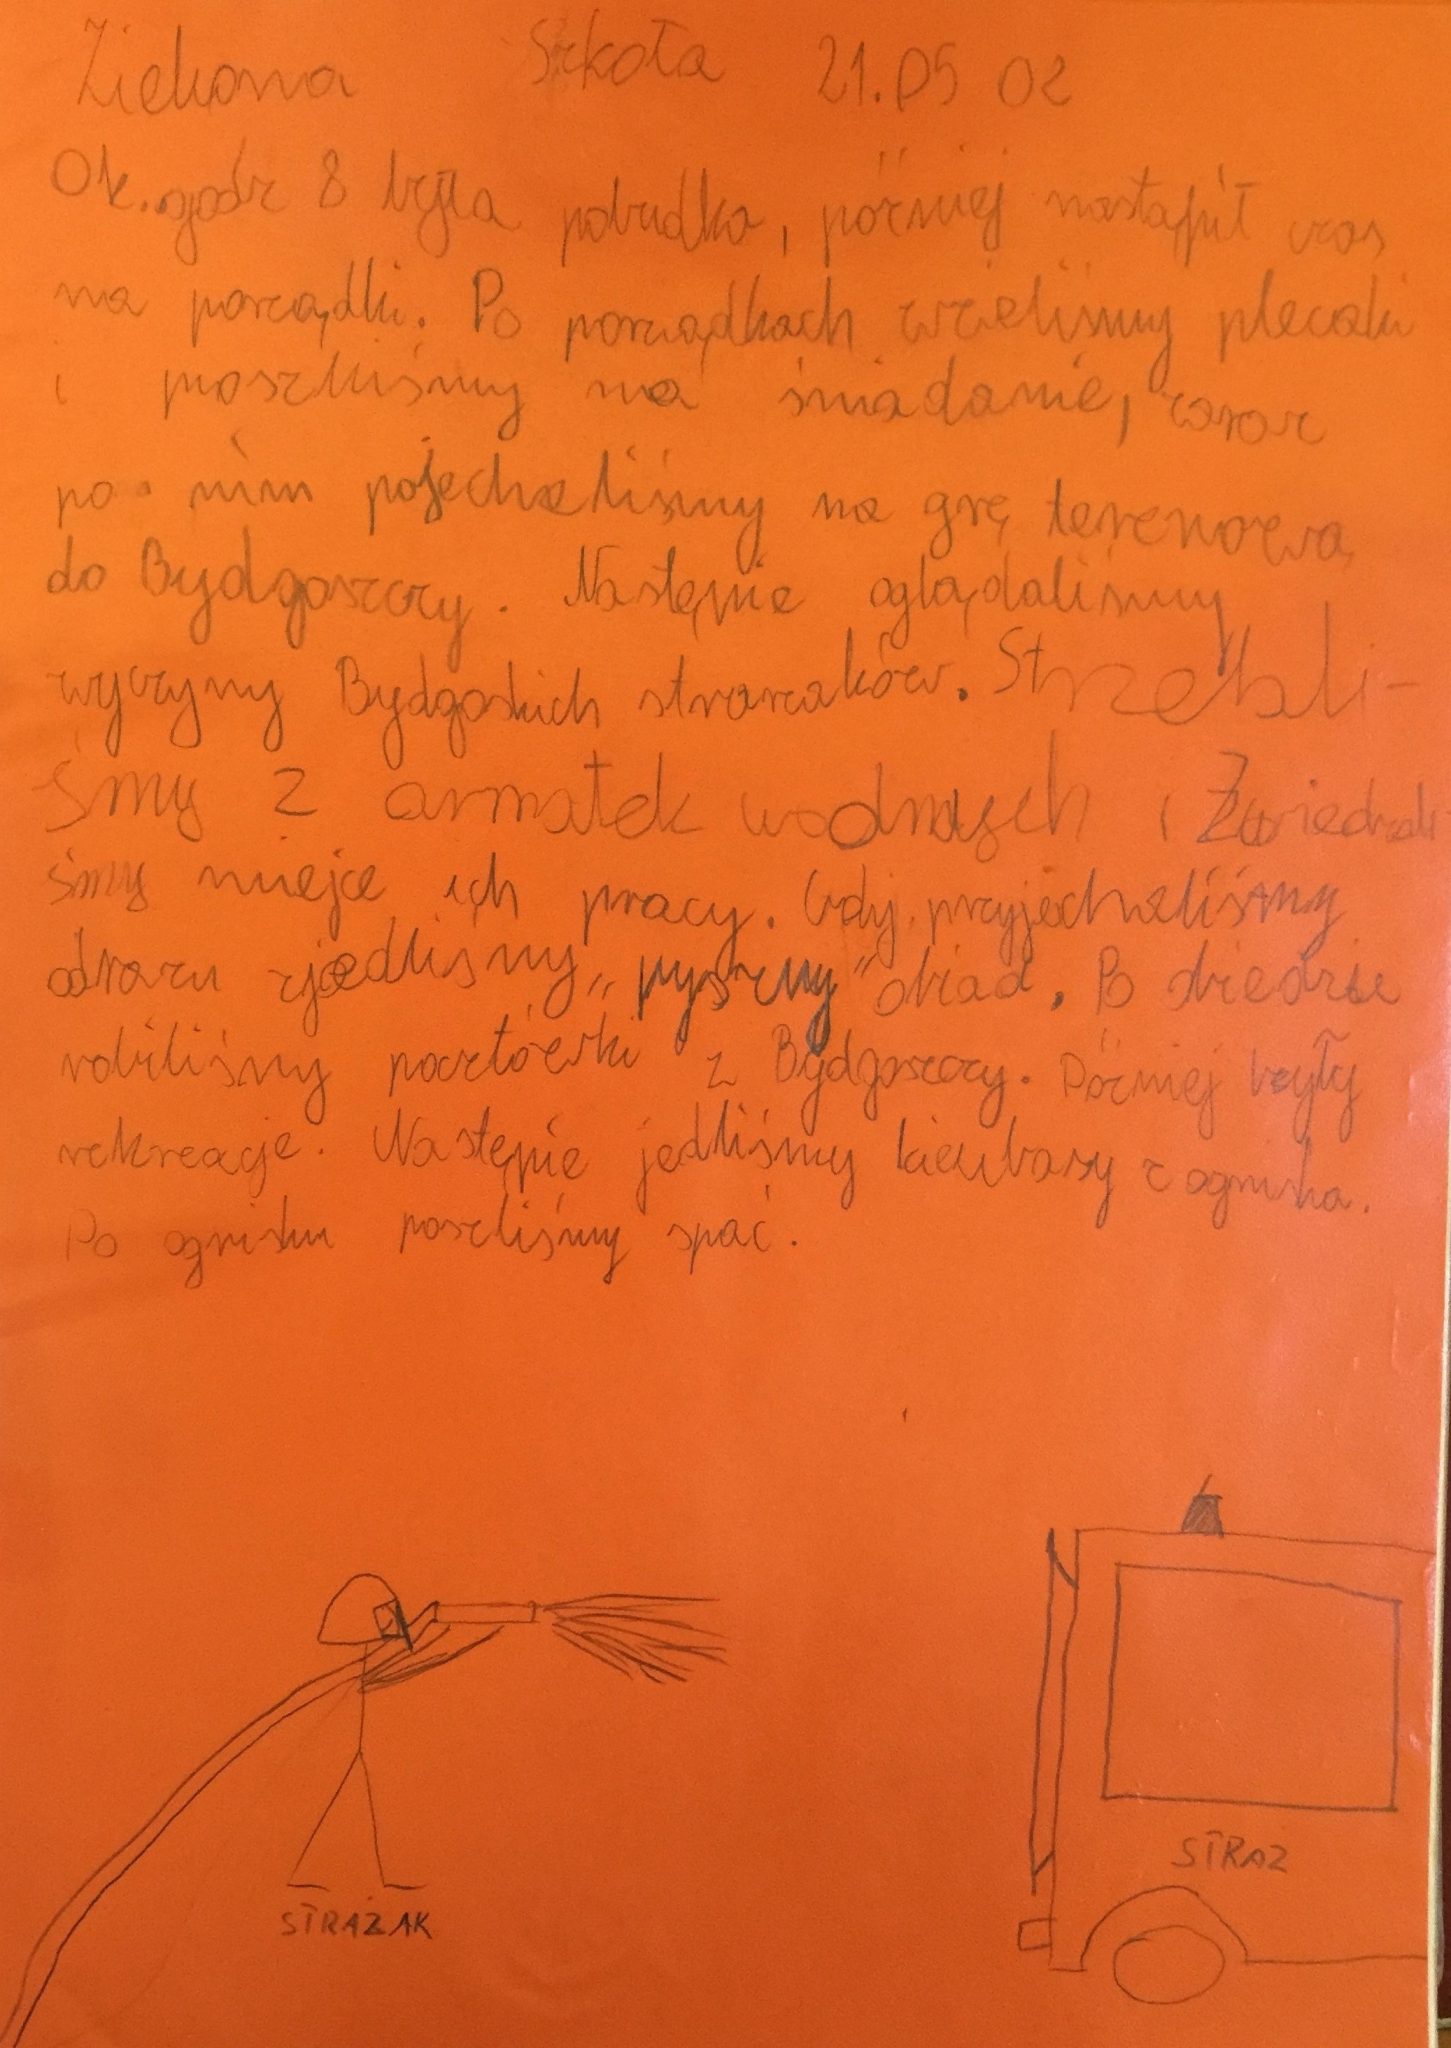 Zielona Szkoła 21.05 02
Ok. godz 8 była pobudka, później nastąpił czas
na porządki. Po porządkach wzieliśmy plecaki
i poszliśmy na śniadanie, zaraz
po nim pojechaliśmy na grę terenową
do Bydgoszczy. Następnie oglądaliśmy
wyczyny Bydgoskich strażaków. Strzelali-
śmy z armatek wodnych i Zwiedzali
śmy miejce ich pracy. Gdy przyjechaliśmy
odrazu zjedliśmy "pyszny" obiad. Po obiedzie
robiliśmy pocztówki z Bydgoszczy. Później były
rekreacje. Następnie jedliśmy kiełbasy z ogniska.
Po ognisku poszliśmy spać.
STRAŻAK
STRAZ